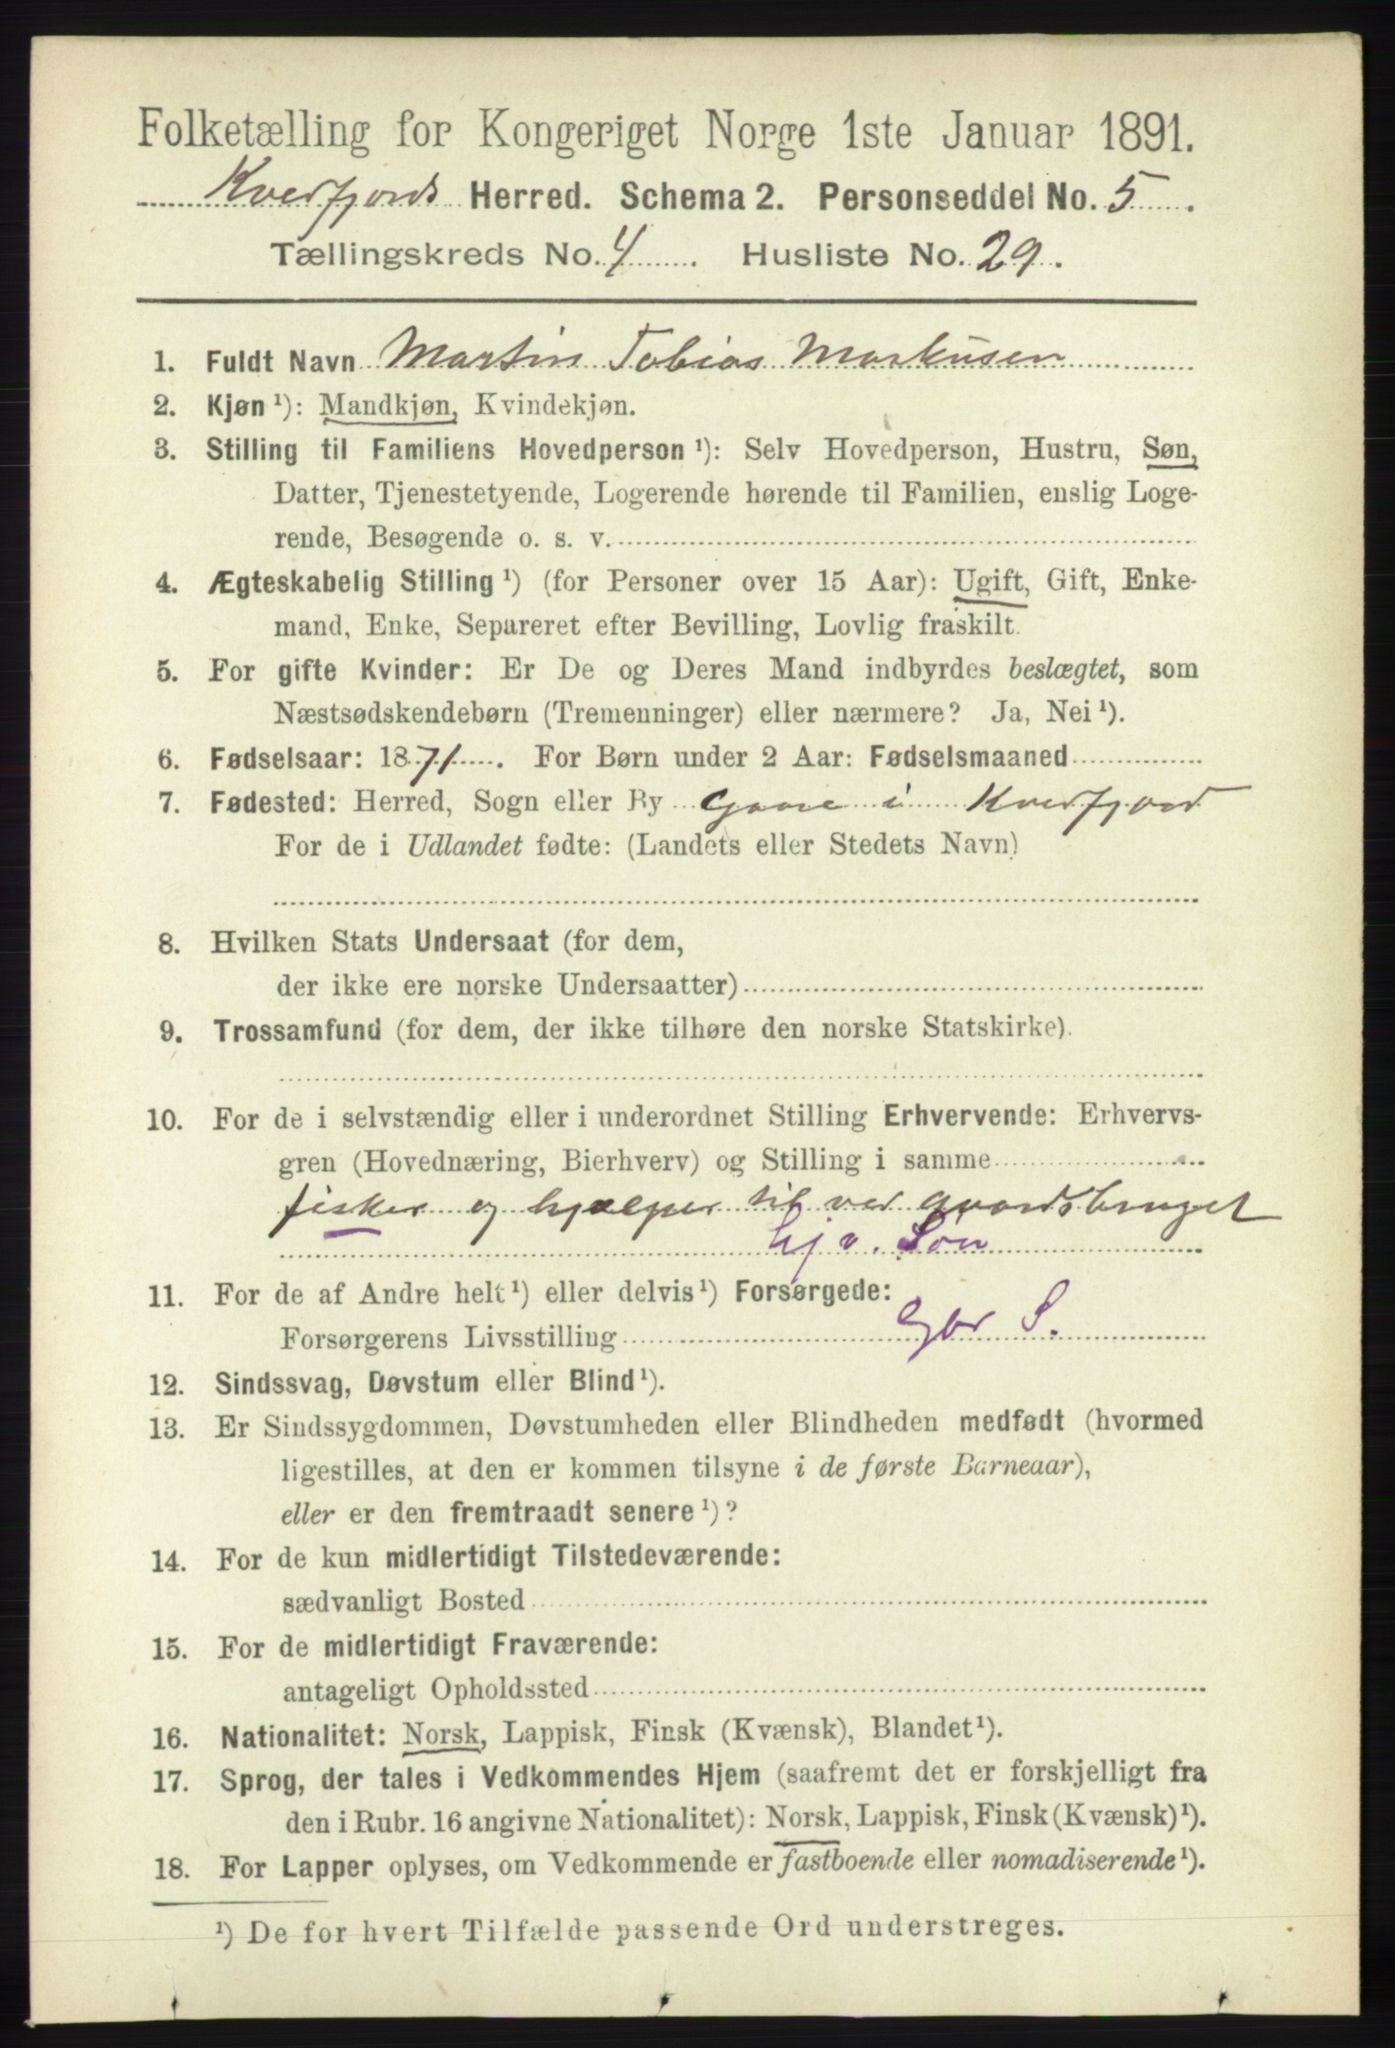 Folketælling for Kongeriget Norge 1ste Januar 1891.
Kvedfjords Herred. Schema 2. Personseddel No. 5.
Tællingskreds No. 4. Husliste No. 29.
1. Fuldt Navn Martin Tobias Markusen
2. Kjøn ¹): Mandkjøn, Kvindekjøn.
3. Stilling til Familiens Hovedperson ¹): Selv Hovedperson, Hustru, Søn,
Datter, Tjenestetyende, Logerende hørende til Familien, enslig Loge-
rende, Besøgende o. s. v.
4. Ægteskabelig Stilling ¹) (for Personer over 15 Aar): Ugift, Gift, Enke-
mand, Enke, Separeret efter Bevilling, Lovlig fraskilt.
5. For gifte Kvinder: Er De og Deres Mand indbyrdes beslægtet, som
Næstsødskendebørn (Tremenninger) eller nærmere? Ja, Nei ¹).
6. Fødselsaar: 1871. For Børn under 2 Aar: Fødselsmaaned
7. Fødested: Herred, Sogn eller By i Kvedfjord
For de i Udlandet fødte: (Landets eller Stedets Navn)
8. Hvilken Stats Undersaat (for dem,
der ikke ere norske Undersaatter)
9. Trossamfund (for dem, der ikke tilhøre den norske Statskirke).
10. For de i selvstændig eller i underordnet Stilling Erhvervende: Erhvervs-
gren (Hovednæring, Bierhverv) og Stilling i samme
fisker og hjælper til ved gaardsbruget
hjv. Søn
11. For de af Andre helt ¹) eller delvis ¹) Forsørgede:
Forsørgerens Livsstilling Gbr S.
12. Sindssvag, Døvstum eller Blind ¹).
13. Er Sindssygdommen, Døvstumheden eller Blindheden medfødt (hvormed
ligestilles, at den er kommen tilsyne i de første Barneaar),
eller er den fremtraadt senere ¹)?
14. For de kun midlertidigt Tilstedeværende:
sædvanligt Bosted
15. For de midlertidigt Fraværende:
antageligt Opholdssted
16. Nationalitet: Norsk, Lappisk, Finsk (Kvænsk), Blandet ¹).
17. Sprog, der tales i Vedkommendes Hjem (saafremt det er forskjelligt fra
den i Rubr. 16 angivne Nationalitet): Norsk, Lappisk, Finsk (Kvænsk) ¹).
18. For Lapper oplyses, om Vedkommende er fastboende eller nomadiserende ¹).
¹) De for hvert Tilfælde passende Ord understreges.